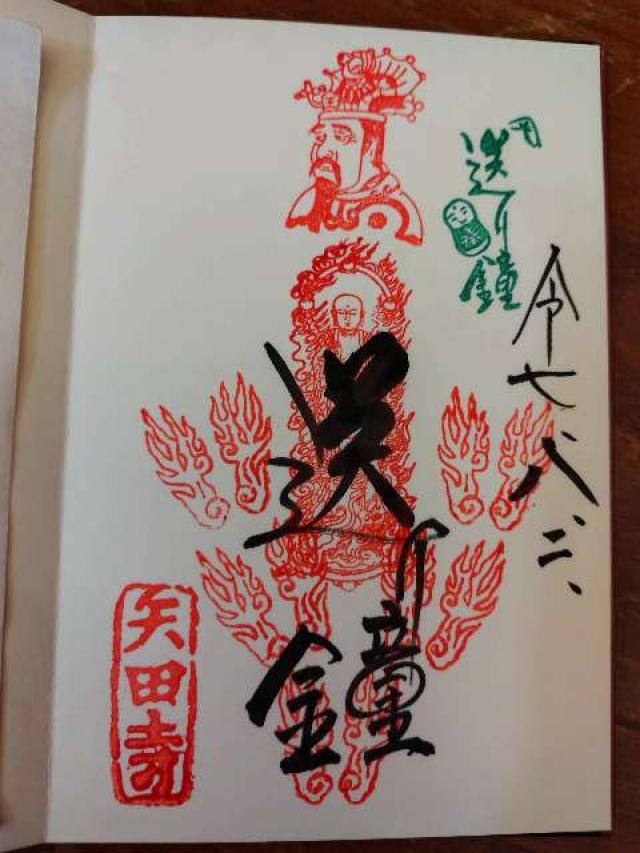 令七、八、二、
送り鐘
送り鐘
矢田寺